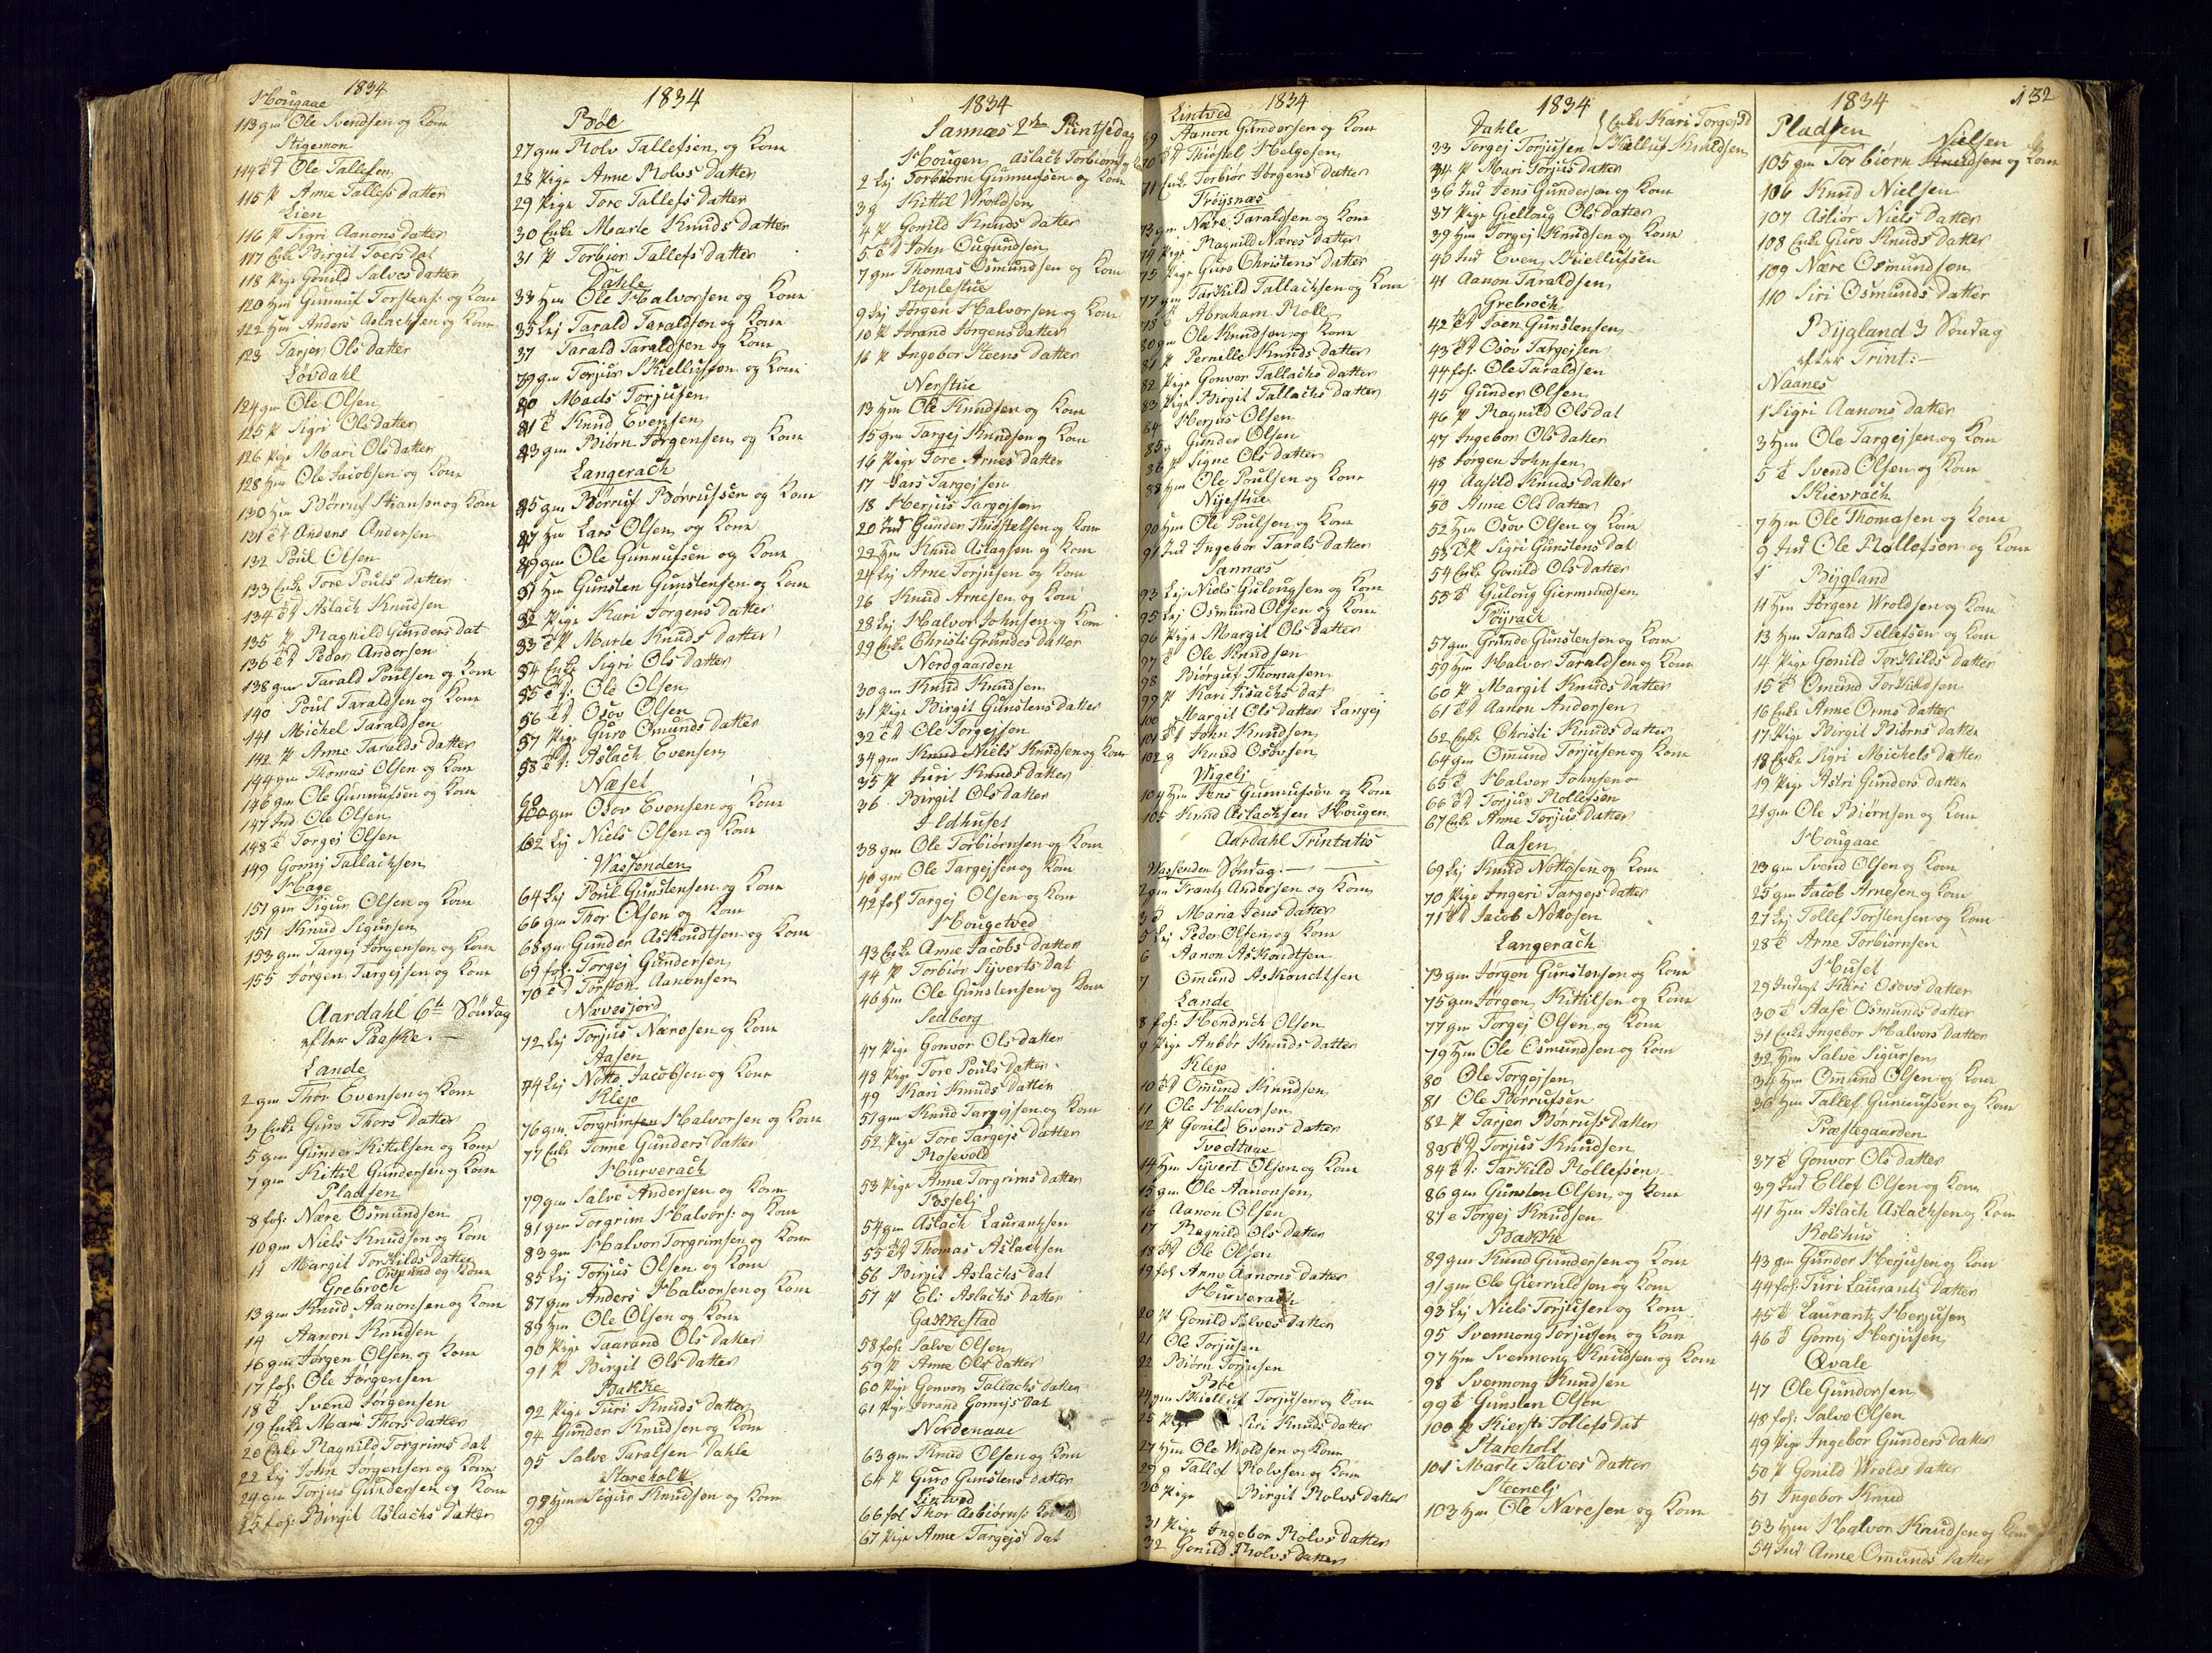 1834
Hougaae
113 gm Ole Svendsen og Kone
Stigemon
114 Ole Tallefsen
115 P Anne Tallefs Datter
Lien
116 P Sigri Aanons datter
117 Enke Birgit Toers Dat
118 Pige Gonild Salves datter
120 Hm Gunnuf Torstens: og Kone
122 Hm Anders Aslachsen og Kone
123 Tarjer Ols datter
Løvdahl
124 gm Ole Olsen
125 P Sigri Ols datter
126 Pige Mari Ols datter
128 Hm Ole Jacobsen og Kone
130 Hm Børruf og Kone
131 Anders Andersen
132 Poul Olsen
133 Enke Tore Pouls datter
134 Aslach Knudsen
135 P Ragnild Gunders dat
136 Peder Andersen
138 gm Tarald Poulsen og Kone
140 Poul Taraldsen og Kone
141 Michel Taraldsen
142 P Anne Taralds datter
144 gm Thomas Olsen og Kone
146 gm Ole Gunnufsen og Kone
147 Ind Ole Olsen
148 Torgej Olsen
149 Gonnj Tallachsen
Hage
151 gm Sigur Olsen og Kone
151 Knud Sigursen
153 gm Targej Jørgensen og Kone
155 Jørgen Targejsen og Kone
Aardahl 6te Søndag
efter Paaske.
Lande
2 gm Thor Evensen og Kone
3 Enke Guro Thors datter
5 gm Gunder Kittelsen og Kone
7 gm Kittil Gundersen og Kone
Pladsen
8 fos: Nære Osmundsen
10 gm Niels Knudsen og Kone
11 Margit Torkilds datter
Omund og Kone
Grebroch
13 gm Knud Aanonsen og Kone
14 Aanon Knudsen
16 gm Jørgen Olsen og Kone
17 fos: Ole Jørgensen
18 Svend Jørgensen
19 Enke Mari Thors datter
20 Enke Ragnild Torgrims dat
22 Lej John Jørgensen og Kone
24 gm Torjus Gundersen og Kone
25 fos: Birgit Aslachs datter
1834
Bøe
27 gm Rolv Tallefsen og Kone
28 Pige Anne Rolvs Datter
29 Pige Tore Tallefs datter
30 Enke Marte Knuds datter
31 P Torbior Tallefs datter
Dahle
33 Hm Ole Halvorsen og Kone
35 Lej Tarald Taraldsen og Kone
37 Tarald Taraldsen og Kone
39 gm Torjus Skiellufsen og Kone
40 Mads Torjusen
41 Knud Evensen
43 gm Biørn Jørgensen og Kone
Langerach
45 gm Børruf Børrufsen og Kone
47 Hm Lars Olsen og Kone
49 gm Ole Gunnufsen og Kone
51 Hm Gunsten Gunstensen og Kone
52 Pige Kari Jørgens datter
53 P Marte Knuds datter
54 Enke Sigri Ols datter
55 Ole Olsen
56 Osov Olsen
57 Pige Guro Omunds datter
58 Aslach Evensen
Næset
60 gm Osov Evensen og Kone
62 Lej Niels Olsen og Kone
Wassenden
64 Lej Poul Gunstensen og Kone
66 gm Thor Olsen og Kone
68 gm Gunder Askoudtsen og Kone
69 fos: Torgej Gundersen
70 Torsten Aanonsen
Nævesjord
72 Lej Torjus Næresen og Kone
Aasen
74 Lej Notto Jacobsen og Kone
Klep
76 gm Torgrim Halvorsen og Kone
77 Enke Tonne Gunders datter
Hurverach
79 gm Salve Andersen og Kone
81 gm Torgrim Halvors: og Kone
83 gm Halvor Torgrimsen og Kone
85 Lej Torjus Olsen og Kone
87 gm Anders Halvorsen og Kone
89 Hm Ole Olsen og Kone
90 Pige Taarand Ols datter
91 P Birgit Ols datter
Bakke
92 Pige Turi Knuds datter
94 Gunder Knudsen og Kone
95 Salve Taralsen Dahle
Stareholt
97 Hm Sigur Knudsen og Kone
99
1834
Sannæs 2den Pintsedag
Hougen Aslach Torbiørns
2 Lej Torbiørn Gunnufsen og Kone
3 g Kittil Wroldsen
4 P Gonild Knuds datter
5 John Ougundsen
7 gm Thomas Osmundsen og Kone
Stoplestue
9 Lej Jørgen Halvorsen og Kone
10 P Jorand Jørgens datter
16 P Ingebor Steens datter
Nerstue
13 Hm Ole Knudsen og Kone
15 gm Targej Knudsen og Kone
16 Pige Tore Arnes datter
17 Lars Targejsen
18 Herjus Targejsen
20 Ind Gunder Thostelsen og Kone
22 Hm Knud Aslagsen og Kone
24 Lej Arne Torjusen og Kone
26 Knud Arnesen og Kone
28 Lej Halvor Johnsen og Kone
29 Enke Christi Grundes datter
Nordgaarden
30 gm Knud Knudsen
31 Pige Birgit Gunstens datter
32 Ole Torgejsen
34 gm Niels Knudsen og Kone
35 P Juri Knuds datter
36 Birgit Ols datter
Ildhuset
38 gm Ole Torbiørnsen og Kone
40 gm Ole Targejsen og Kone
42 fos Targej Olsen og Kone
Hougetved
43 Enke Anne Jacobs datter
44 P Torbior Syverts dat
46 Hm Ole Gunstensen og Kone
Sedberg
47 Pige Gonvor Ols datter
48 Pige Tore Pouls datter
49 Kari Knuds datter
51 gm Knud Targejsen og Kone
52 Pige Tore Targejs datter
Rosevold
53 Pige Anne Torgrims datter
Bosselj
54 gm Aslach Laurantsen
55 Thomas Aslachsen
56 Birgit Aslachs dat
57 P Eli Aslachs datter
Gakkestad
58 fos: Salve Olsen
59 P Anne Ols datter
60 Pige Gonvor Tallachs datter
61 Pige Jorand Gonnjs Dat
Nordenaae
63 gm Knud Olsen og Kone
64 P Guro Gunstens datter
Lintved
66 fos Thor Asbiørns
67 Pige Anne Targejs dat
1834
Lintved
69 Aanon Gundersen og Kone
70 Thiostel Helgesen
71 Enke Torbior Jørgens datter
Frøysnæs
73 gm Nære Taraldsen og Kone
74 Pige Ragnild Næres datter
75 Pige Guro Christens datter
77 gm Tarkild Tallachsen og Kone
78 Abraham Roll
80 gm Ole Knudsen og Kone
81 P Pernille Knuds datter
82 Pige Gonvor Tallachs datter
83 Pige Birgit Tallachs datter
84 Herjus Olsen
85 g Gunder Olsen
86 P Signe Ols datter
88 Hm Ole Poulsen og Kone
Nyestue
90 Hm Ole Poulsen og Kone
91 Ind Ingebor Tarals datter
Sannæs
93 Lej Niels Gulougsen og Kone
95 Lej Osmund Olsen og Kone
96 Pige Margit Ols datter
97 Ole Knudsen
98 Biørguf Thomasen
99 P Kari Isachs dat
100 Margit Ols datter Langej
101 John Knudsen
102 g Knud Osovsen
Wigelj
104 Hm Jens Gunnufsen og Kone
105 Knud Aslachsen Hougen
Aardahl Trinitatis
Wassenden Søndag.
2 gm Frantz Andersen og Kone
3 Maria Jens datter
5 Lej Peder Olsen og Kone
6 Aanon Askoudtsen
7 Omund Askoudtsen
Lande
8 fos: Hendrich Olsen
9 Pige Anbor Knuds datter
Klep
10 Omund Knudsen
11 Ole Halvorsen
12 P Gonild Evens datter
Tvedtaae
14 Hm Syvert Olsen og Kone
15 gm Ole Aanonsen
16 Aanon Olsen
17 Ragnild Ols datter
18 Ole Olsen
19 fos Anne Aanons datter
Hurverach
20 P Gonild Salves datter
21 Ole Torjusen
22 Biørn Torjusen
Bøe
24 gm Skielluf Torjusen og Kone
25 Pige Siri Knuds datter
27 Hm Ole Woldsen og Kone
29 g Tallef Rolvsen og Kone
30 Pige Birgit Rolvs datter
31 Pige Ingebor Rolvs datter
32 Gonild Rolvs datter
1834
Dahle
Enke Kari Torgejsd
33 Torgej Torjusen Skielluf Knudsen
34 P Mari Torjus datter
36 Ind Jens Gundersen og Kone
37 Pige Giellaug Ols datter
39 Hm Torgej Knudsen og Kone
40 Ind Even Skiellufsen
41 Aanon Taraldsen
Grebroch
42 Toen Gunstensen
43 Osov Targejsen
44 fos: Ole Taraldsen
45 Gunder Olsen
46 P Ragnild Ols dat
47 Ingebor Ols datter
48 Jørgen Johnsen
49 Aasild Knuds datter
50 Anne Ols datter
52 Hm Osov Olsen og Kone
53 P Sigri Gunstens dat
54 Enke Gonild Ols datter
55 Guloug Giermundsen
Røyrach
57 gm Grunde Gunstensen og Kone
59 Hm Halvor Taraldsen og Kone
60 P Margit Knuds datter
61 Aanon Andersen
62 Enke Christi Knuds datter
64 gm Omund Torjusen og Kone
65 Halvor Johnsen
66 Torjus Rollefsen
67 Enke Anne Torjus datter
Aasen
69 Lej Knud Nottosen og Kone
70 Pige Ingeri Targejs datter
71 Jacob Notosen
Langerach
73 gm Jørgen Gunstensen og Kone
75 gm Jørgen Kittilsen og Kone
77 gm Torgej Olsen og Kone
79 Hm Ole Osmundsen og Kone
80 Ole Torgejsen
81 Ole Børrufsen
82 P Tarjer Børrufs datter
83 Torjus Knudsen
84 Tarkild Rollefsen
86 gm Gunsten Olsen og Kone
87 Torgej Knudsen
Bakke
89 gm Knud Gundersen og Kone
91 gm Ole Gierruldsen og Kone
93 Lej Niels Torjusen og Kone
95 Svennong Torjusen og Kone
97 Hm Svennong Knudsen og Kone
98 Svennong Knudsen
99 Gunsten Olsen
100 P Kiersti Tollefs Dat
Stareholt
101 Marte Salves datter
Steenelj
103 Hm Ole Næresen og Kone
1834
132
Pladsen
Nielsen
105 gm Torbiørn Knudsen og Kone
106 Knud Nielsen
107 Aslior Niels datter
108 Enke Guro Knuds datter
109 Nære Osmundsen
110 Siri Osmunds datter
Bygland 3 Søndag
efter Trint:
Naanes
1 Sigri Aanons datter
3 Hm Ole Targejsen og Kone
5 Svend Olsen og Kone
Skievrach
7 Hm Ole Thomasen og Kone
9 Ind Ole Rollefsen og Kone
Bygland
11 Hm Jørgen Wroldsen og Kone
13 Hm Tarald Tellefsen og Kone
14 Pige Gonild Torkilds datter
15 Omund Torkildsen
16 Enke Anne Orms datter
17 Pige Birgit Biørns datter
18 Enke Sigri Michels datter
19 Pige Astri Gunders datter
21 gm Ole Biørnsen og Kone
Hougaae
23 gm Svend Olsen og Kone
25 gm Jacob Arnesen og Kone
27 Lej Tollef Torstensen og Kone
28 Arne Torbiørnsen
Huset
29 Kari Osovs datter
30 Aase Osmunds datter
31 Enke Ingebor Halvors datter
32 Hm Salve Sigursen
34 Hm Omund Olsen og Kone
36 Hm Tallef Gunnufsen og Kone
Præstegaarden
37 Gonvor Ols datter
39 Ind Ellef Olsen og Kone
41 Hm Aslach Aslachsen og Kone
Kolshus
43 gm Gunder Herjusen og Kone
44 fos: Turi Laurantz datter
45 Laurantz Herjusen
46 Gonnj Herjusen
Qvale
47 Ole Gundersen
48 fos: Salve Olsen
49 Pige Ingebor Gunders datter
50 P Gonild Wrolds datter
51 Ingebor Knud
53 Hm Halvor Knudsen og Kone
54 Ind Anne Omunds datter